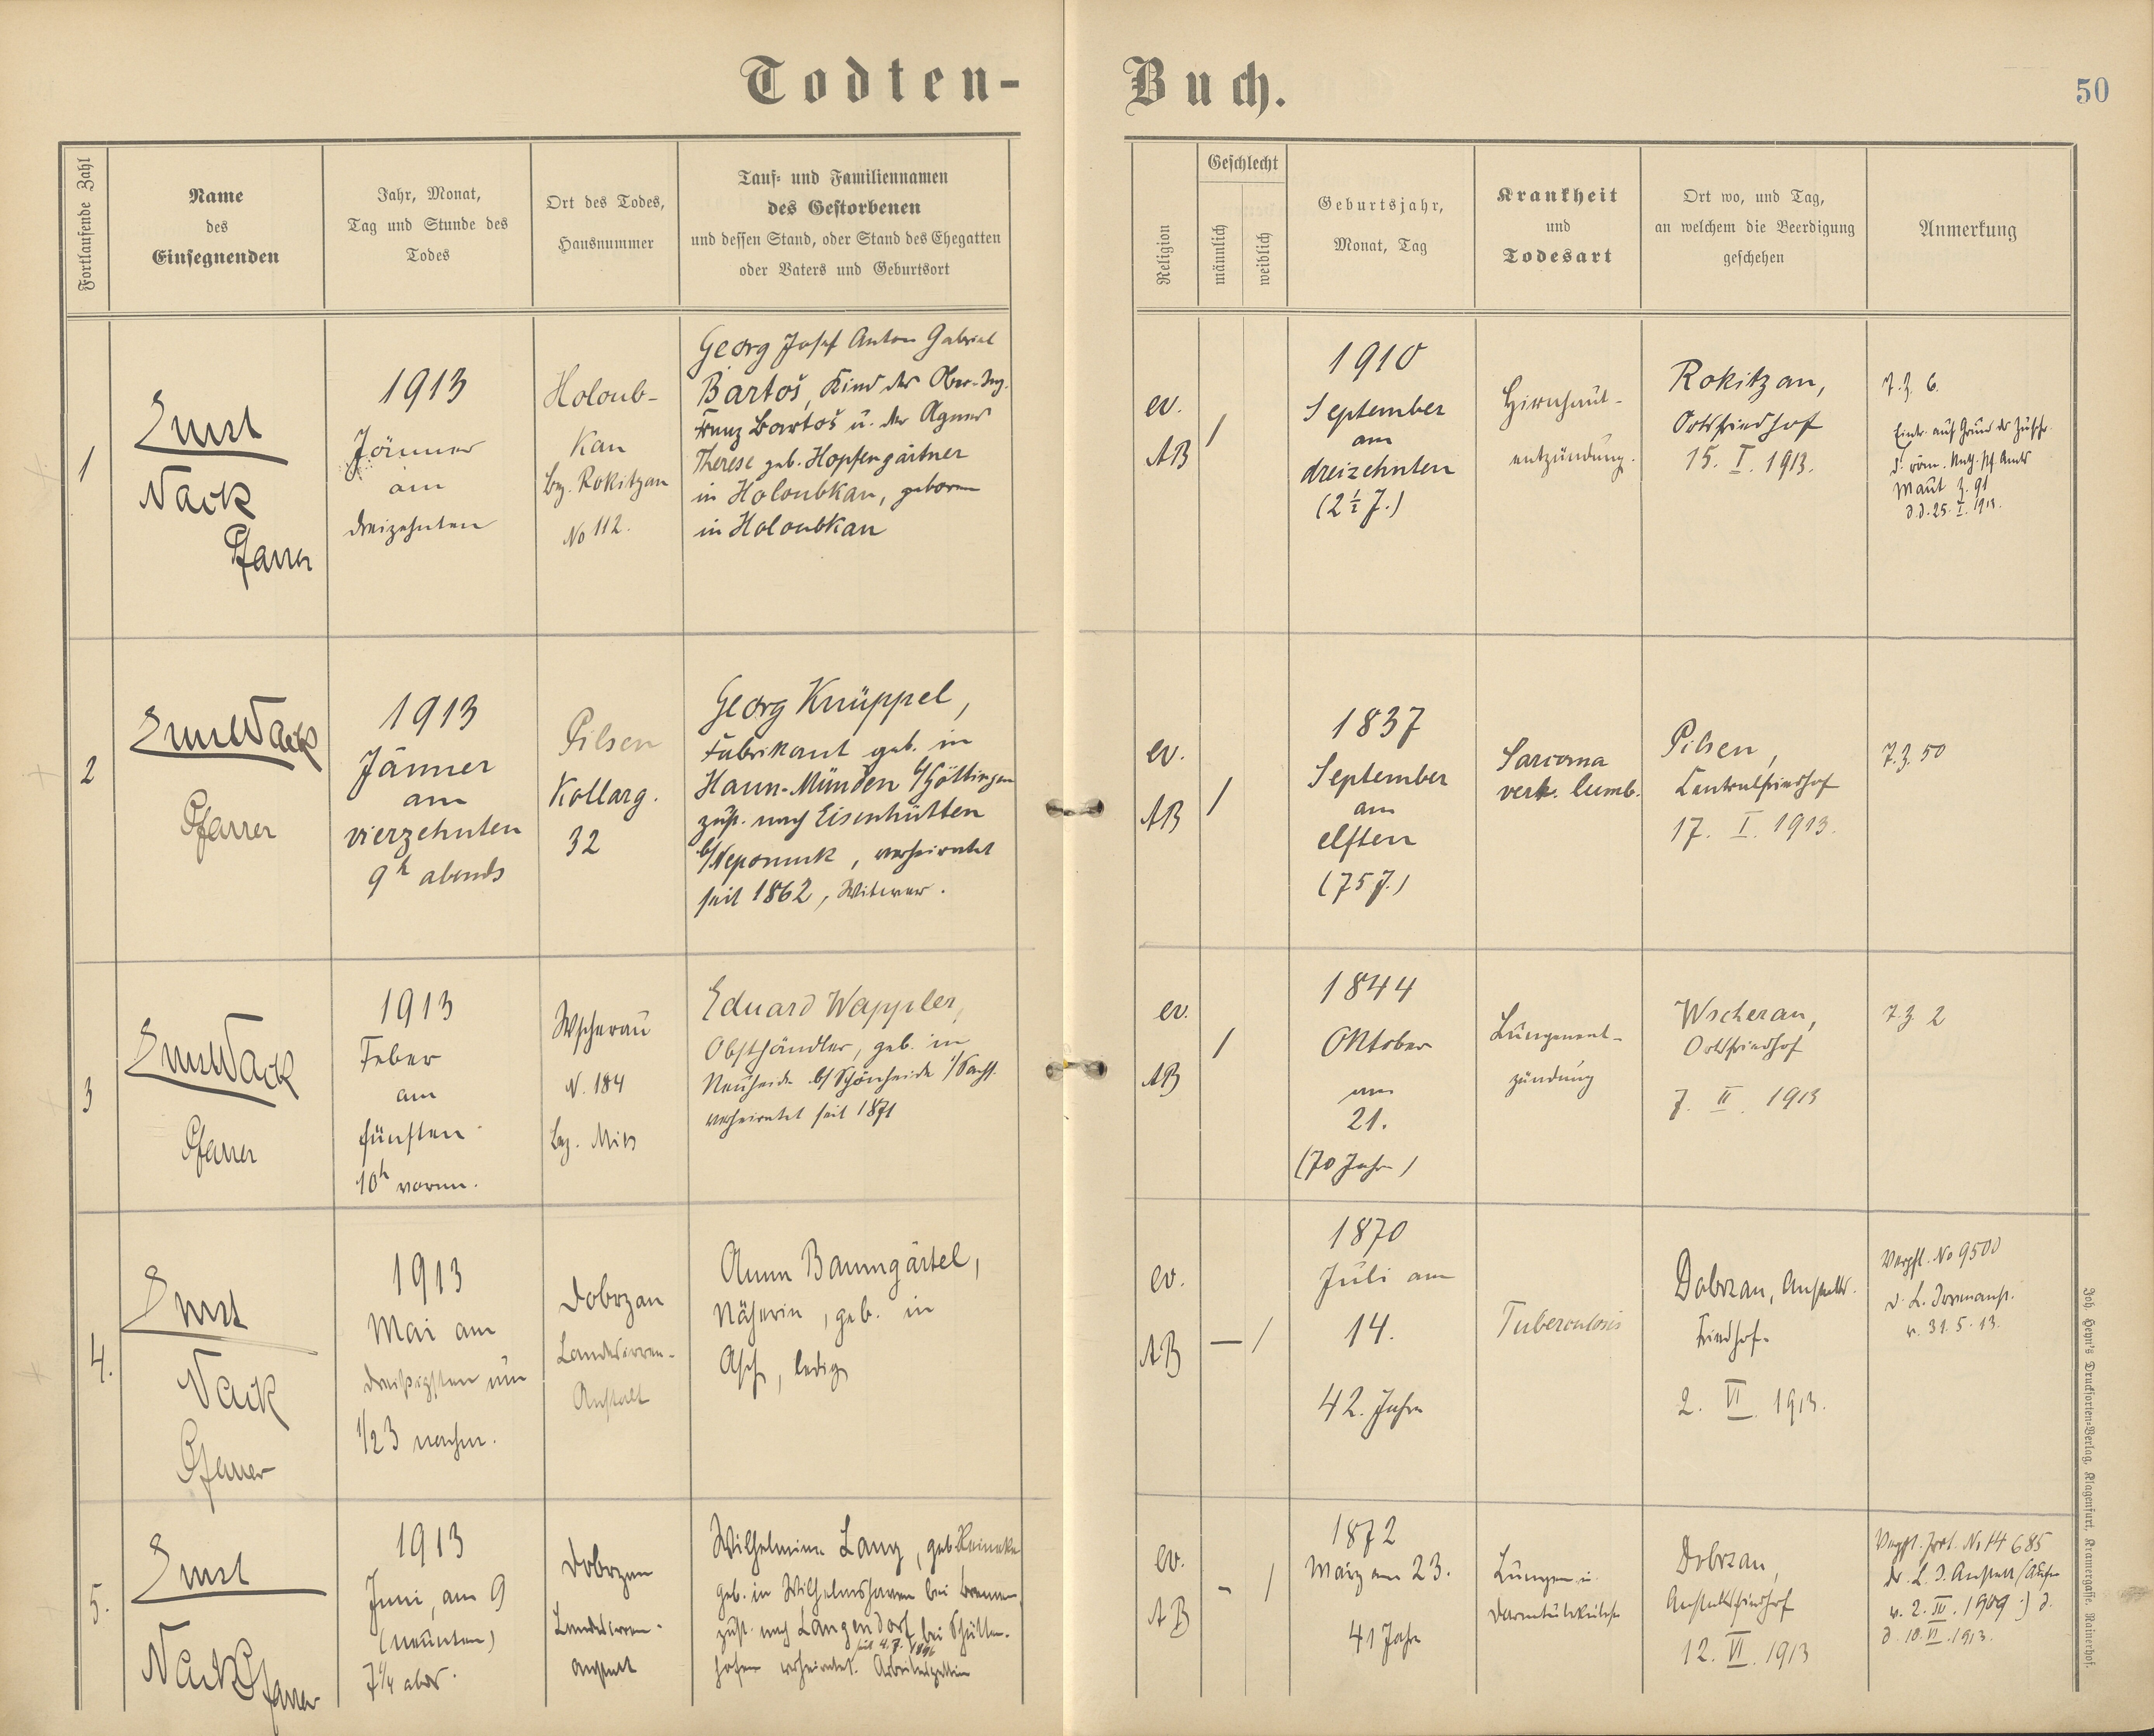 Todten-Buch.
50
Fortlaufende Zahl
Name
des
Einsegnenden
Jahr, Monat,
Tag und Stunde des
Todes
Ort des Todes,
Hausnummer
Tauf- und Familiennamen
des Gestorbenen
und dessen Stand, oder Stand des Ehegatten
oder Vaters und Geburtsort
Religion
Geschlecht
männlich
weiblich
Geburtsjahr,
Monat, Tag
Krankheit
und
Todesart
Ort wo, und Tag,
an welchem die Beerdigung
geschehen
Anmerkung
1
Ernst
Nack
Pfarrer
1913
Jänner
am
dreizehnten
Holoub-
kau
Bez. Rokitzan
No 112.
Georg Josef Anton Gabriel
Bartoš, Kind des Ober-Ing.
Franz Bartoš u. der Agnes
Therese geb. Hopfengärtner
in Holoubkau, geboren
in Holoubkau
ev.
AB
/
1910
September
am
dreizehnten
(2½ J.)
Hirnhaut-
entzündung.
Rokitzan,
Ortsfriedhof
15. I. 1913.
J. Z. 6
Eintr. auf Grund der Zuschr.
d. röm. kath. Pf. Amts
Maut Z. 91
d.d. 25. I. 1913.
2
Ernst Nack
Pfarrer
1913
Jänner
am
vierzehnten
9h abends
Pilsen
Kollarg.
32
Georg Knüppel,
Fabrikant geb. in
Hann-Münden b/Göttingen
zust. nach Eisenhütten
b/Nepomuk, verheiratet
seit 1862, Witwer.
ev.
AB
/
1837
September
am
elften
(75 J.)
Sarcoma
vert. lumb.
Pilsen,
Centralfriedhof
17. I. 1913.
J. Z. 50
3
Ernst Nack
Pfarrer
1913
Feber
am
fünften
10h vorm.
Wscherau
N. 184
Bez. Mies
Eduard Wappler,
Obsthändler, geb. in
Neuheide b/Schönheide i/Sachs.
verheiratet seit 1871
ev.
AB
/
1844
Oktober
am
21.
(70 Jahre)
Lungenent-
zündung
Wscherau,
Ortsfriedhof
7. II. 1913
J. Z. 2
4.
Ernst
Nack
Pfarrer
1913
Mai am
dreißigsten um
1/2 3 nachm.
Dobrzan
Landesirren-
Anstalt
Anna Baumgärtel,
Näherin, geb. in
Asch, ledig
ev.
AB
— /
1870
Juli am
14.
42. Jahre
Tuberculosis
Dobrzan, Anstalts-
Friedhof.
2. VI. 1913.
Verpfl. No 9500
d. L. Irrenanst.
v. 31. 5. 13.
5.
Ernst
Nack Pfarrer
1913
Juni, am 9
(neunten)
7 1/4 abds.
Dobrzan
Landesirren-
anstalt
Wilhelmine Lang, geb. Reineke
geb. in Wilhelmshaven bei Bremen,
zust. nach Langendorf bei Schütten-
hofen verheiratet. Arbeitersgattin
ev.
AB
- /
1872
März am 23.
41 Jahre
Lungen u.
Darmtuberkulose
Dobrzan,
Anstaltsfriedhof
12. VI. 1913
Verpfl. Prot. No 14 685
v. 2. III. 1909 :) d.
d. 10. VI. 1913.
Joh. Heyn's Drucksorten-Verlag, Klagenfurt, Kramergasse, Rainerhof.